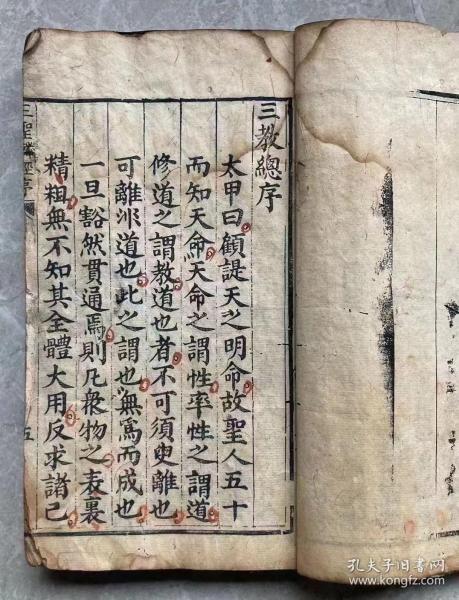 三教總序
太甲曰顧諟天之明命故聖人五十
而知天命天命之謂性率性之謂道
修道之謂教道也者不可須臾離也
可離非道也此之謂也無爲而成也
一旦豁然貫通焉則凡衆物之表裏
精粗無不知其全體大用反求諸己
三聖
經序
五
孔夫子旧书网
www.kongfz.com